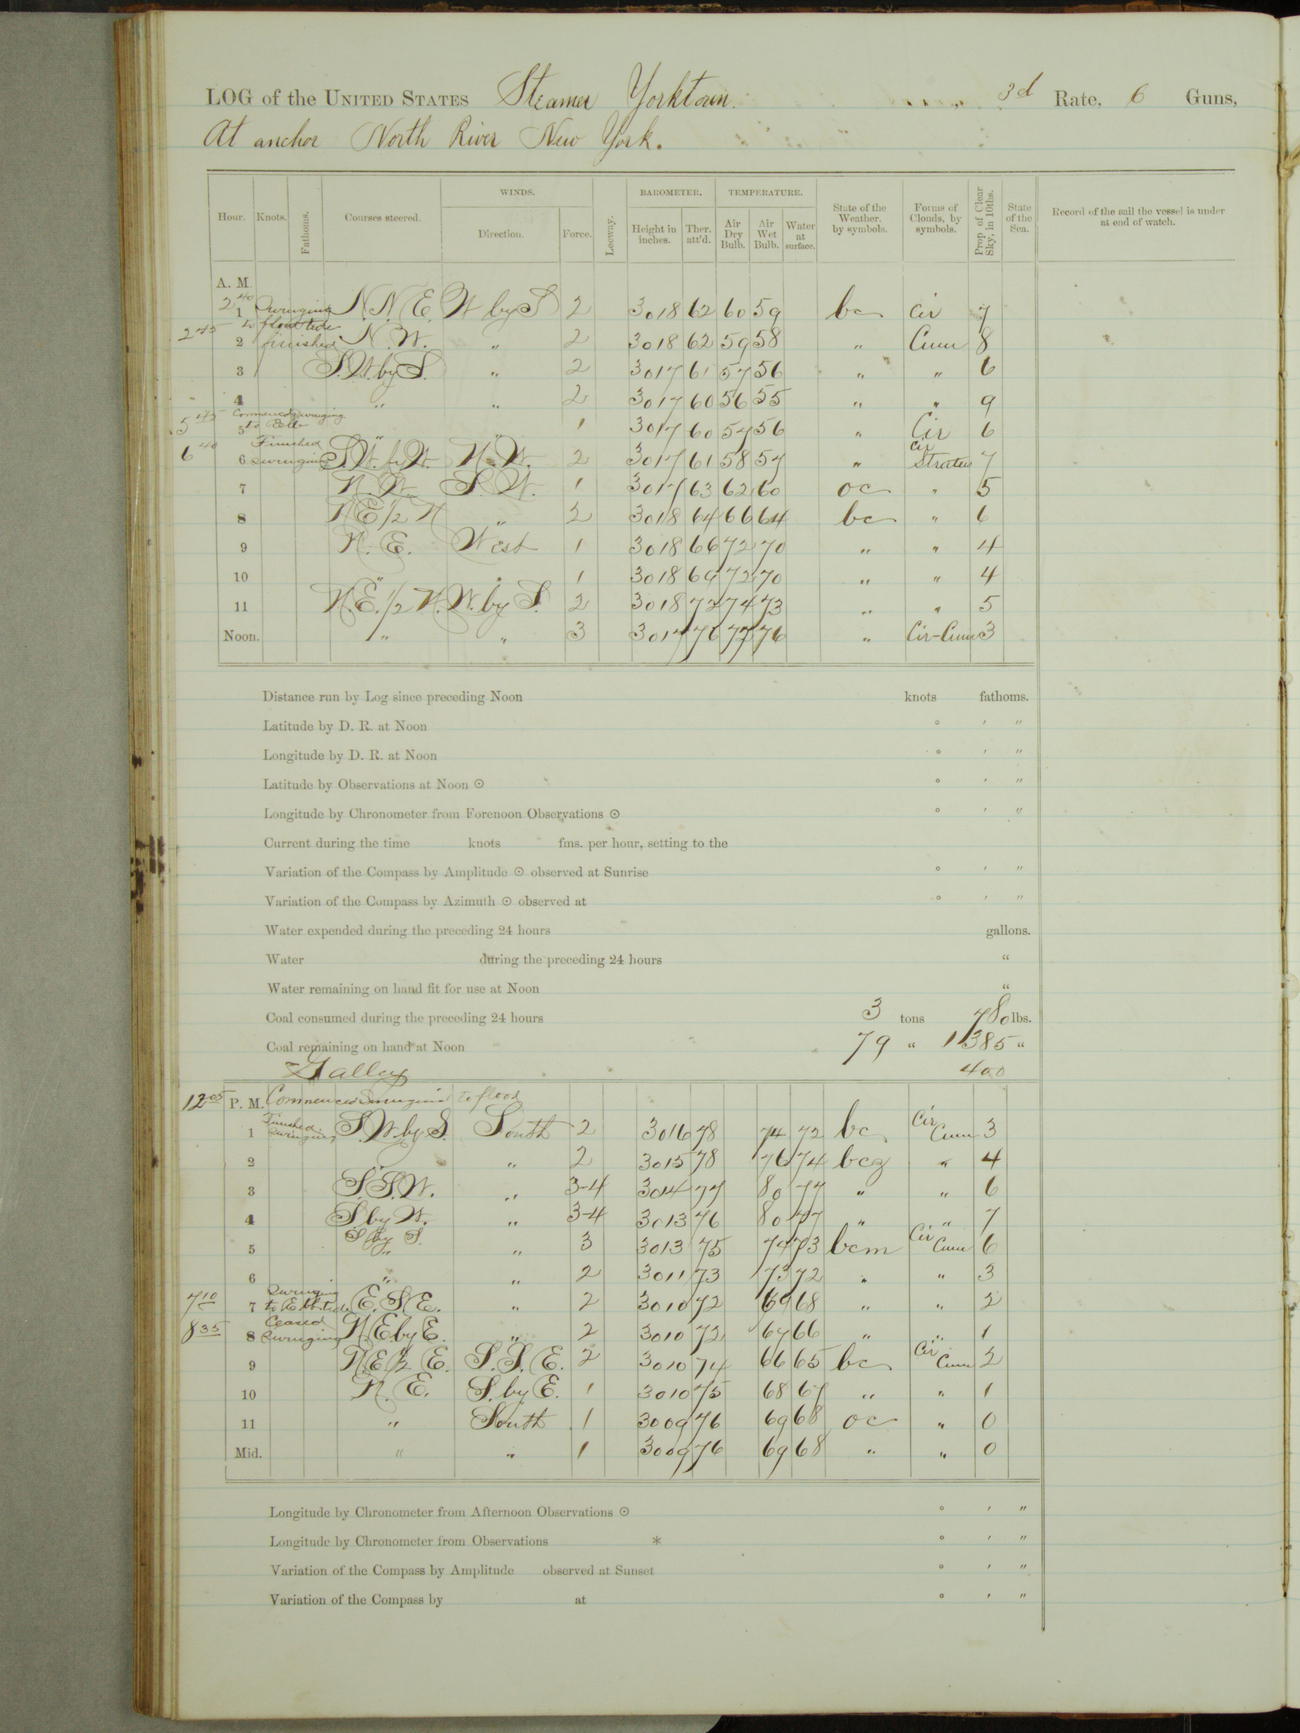 LOG of the UNITED STATES Steamer Yorktown. 3d Rate, 6 Guns,
At anchor North River New York.
WINDS. BAROMETER. TEMPERATURE.
Hour. Knots. Fathoms. Courses steered. Direction. Force. Leeway. Height in inches. Ther. att'd. Air Dry Bulb. Air Wet Bulb. Water at surface. State of the Weather, by symbols. Forms of Clouds, by symbols. Prop. of Clear Sky, in 10ths. State of the Sea. Record of the sail the vessel is under at end of watch.
A. M.
2 40 1 Swinging N.N.E. W by S 2 3018 62 60 59 bc Cir 7
to flood tide
2 45 2 finished N.W. " 2 3018 62 59 58 " Cum 8
3 S.W. by S. " 2 3017 61 57 56 " " 6
4 " " 2 3017 60 56 55 " " 9
5 Commenced swinging to Ebb " " 1 3017 60 57 56 " Cir 6
6 40 6 Finished swinging S.W. by W. N.W. 2 3017 61 58 57 " Cir Stratus 7
7 N.W. S.W. 1 3017 63 62 60 oc " 5
8 NE 1/2 N " 2 3018 64 66 64 bc " 6
9 N.E. West 1 3018 66 72 70 " " 4
10 " " 1 3018 69 72 70 " " 4
11 N.E. 1/2 N. W. by S. 2 3018 72 74 73 " " 5
Noon. " " 3 3017 76 77 76 " Cir-Cum 3
Distance run by Log since preceding Noon knots fathoms.
Latitude by D. R. at Noon ° ' "
Longitude by D. R. at Noon ° ' "
Latitude by Observations at Noon ⊙ ° ' "
Longitude by Chronometer from Forenoon Observations ⊙ ° ' "
Current during the time knots fms. per hour, setting to the
Variation of the Compass by Amplitude ⊙ observed at Sunrise ° ' "
Variation of the Compass by Azimuth ⊙ observed at ° ' "
Water expended during the preceding 24 hours gallons.
Water during the preceding 24 hours "
Water remaining on hand fit for use at Noon "
Coal consumed during the preceding 24 hours 3 tons 780 lbs.
Coal remaining on hand at Noon 79 " 1385 "
Galley 400
12 05 P. M. Commenced Swinging to flood
1 Finished swinging S.W. by S. South 2 3016 78 74 72 bc Cir Cum 3
2 " " 2 3015 78 76 74 bcz " 4
3 S.S.W. " 3-4 3014 77 80 77 " " 6
4 S by W. " 3-4 3013 76 80 77 " " 7
5 " " 3 3013 75 74 73 bcm Cir Cum 6
6 " " 2 3011 73 73 72 " " 3
7 10 7 Swinging to Ebb tide E.S.E. " 2 3010 72 69 68 " " 2
8 35 8 Ceased Swinging N.E by E. " 2 3010 72 67 66 " " 1
9 N.E 1/2 E. S.S.E. 2 3010 74 66 65 bc Cir Cum 2
10 N.E. S. by E. 1 3010 75 68 67 " " 1
11 " South 1 3009 76 69 68 oc " 0
Mid. " " 1 3009 76 69 68 " " 0
Longitude by Chronometer from Afternoon Observations ⊙ ° ' "
Longitude by Chronometer from Observations * ° ' "
Variation of the Compass by Amplitude observed at Sunset ° ' "
Variation of the Compass by at ° ' "